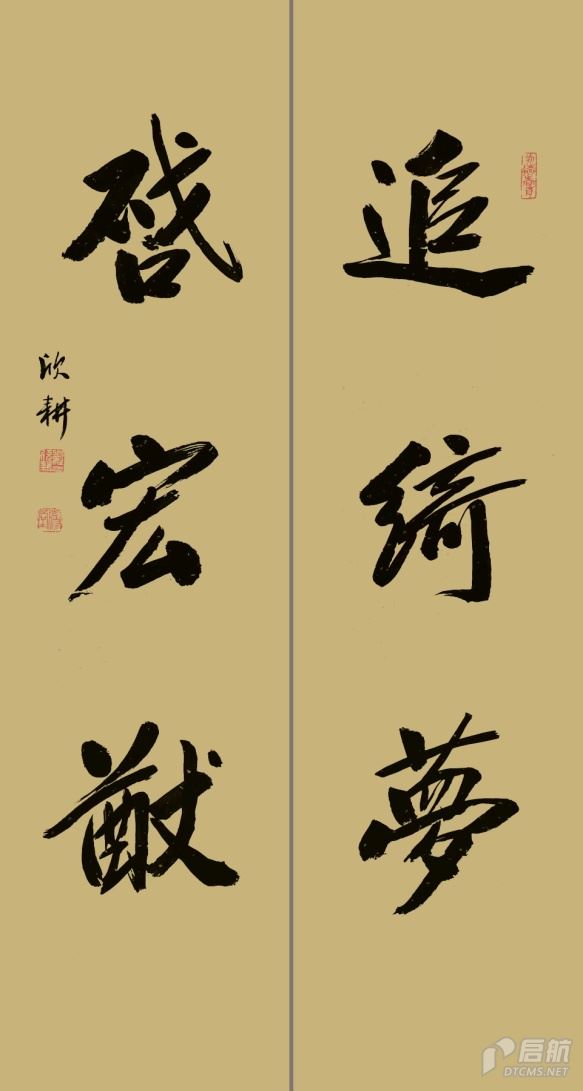 追綺夢
啓宏猷
欣耕
启航
DTCMS.NET